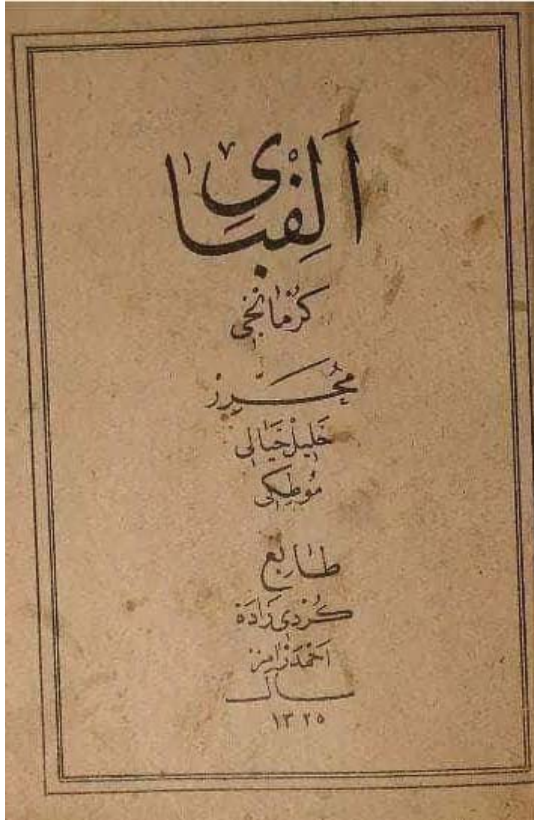 اَلِفْبَایْ
کُرْمَانْجِی
مُحَرِّرْ
خَلِیلْ خَیَالِی
مُوطِکِی
طَابِعْ
کُرْدِی زَادَه
اَحْمَدْ رَامِزْ
سال
۱۳۲۵